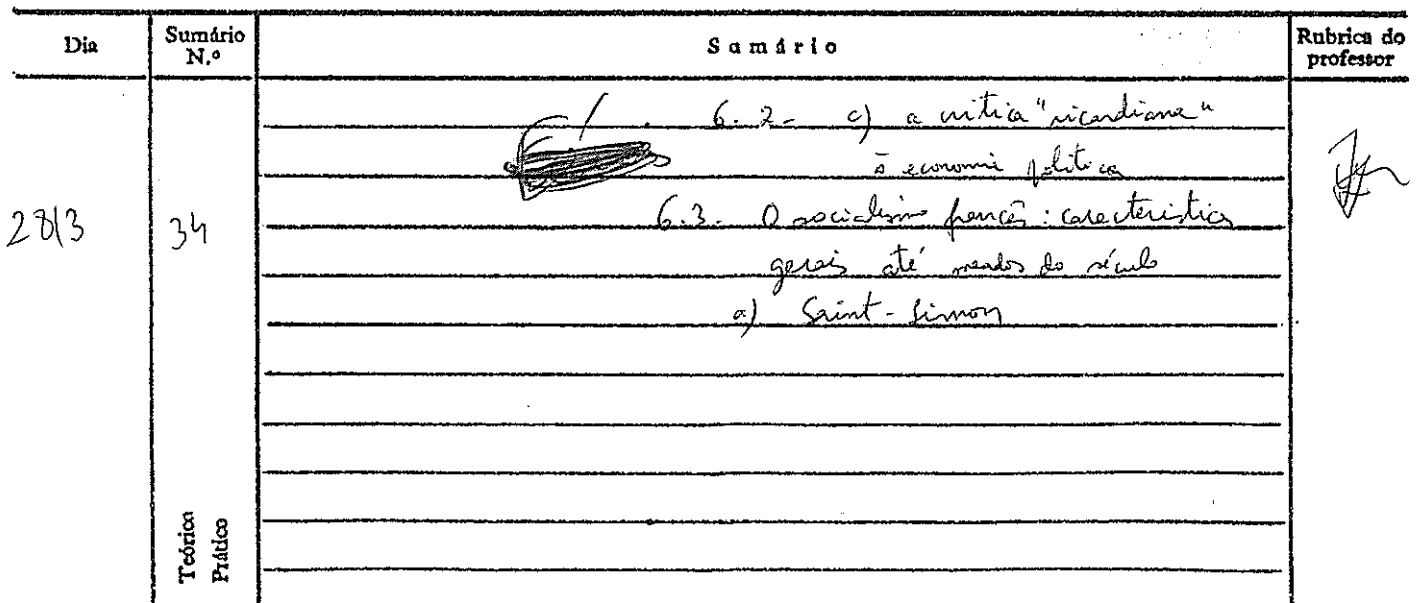 Dia
Sumário N.º
Sumário
Rubrica do professor
6.2- c) a crítica "ricardiana"
à economia política
28/3
34
6.3. O socialismo francês: características
gerais até meados do século
a) Saint-Simon
Teórico
Prático